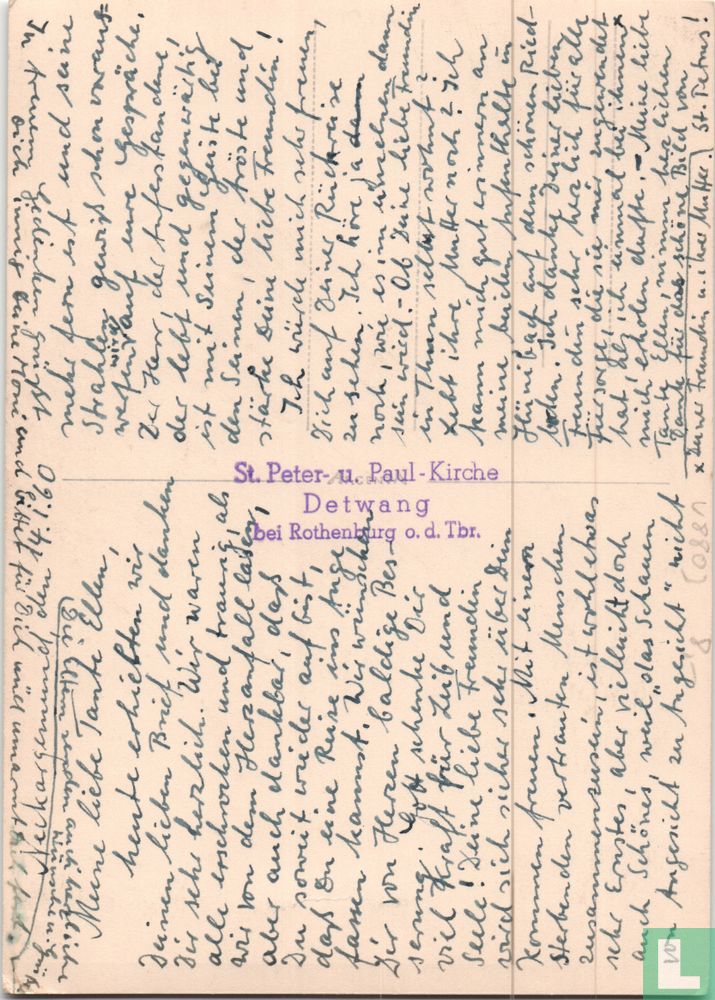 09.1.48
Meine liebe Tante Ellen,
heute erhielten wir
Deinen lieben Brief und danken
Dir sehr herzlich. Wir waren
alle erschrocken und traurig, als
wir von dem Herzanfall lasen,
aber auch dankbar, daß
Du soweit wieder auf bist,
daß Du eine Reise ins Auge
fassen kannst. Wir wünschen
Dir von Herzen baldige Bes-
serung. Gott schenke Dir
viel Kraft für Leib und
Seele! Deine liebe Freundin
wird sich sicher sehr über Dein
Kommen freuen. Mit einem
sterbenden vertrauten Menschen
zusammenzusein, ist wohl etwas
sehr Ernstes, aber vielleicht doch
auch Schönes, weil "das Schauen
von Angesicht zu Angesicht" nicht
mehr fern ist und seine
Strahlen gewiß schon voraus=
werfen wird auf eure Gespräche.
Der Herr, der Auferstandene,
der lebt und gegenwärtig
ist mit Seinem Geiste bei
den Seinen, der tröste und
stärke Deine liebe Freundin!
Ich würde mich sehr freuen,
Dich auf Deiner Rückreise
zu sehen. Ich höre ja dann
noch, wie es im einzelnen dann
sein wird. - Ob Deine liebe Freundin
in Thun selbst wohnt?
Lebt ihre Mutter noch? Ich
kann mich gut erinnern an
meine beiden Aufenthalte in
Hünibach auf dem schönen Ried-
boden. Ich danke Deiner lieben
Freundin sehr herzlich für alle
Fürsorge, die sie mir zugewendet
hat, als ich einmal bei ihnen x
mich erholen durfte. - Meine liebe
Tante Ellen, nimm herzlichen
Dank für das schöne Bild von
St. Petrus!
x Deiner Freundin u. ihrer Mutter.
In treuem Gedenken grüßt
Dich innig Deine Moni und bittet für Dich und umarmt
Die Eltern senden auch herzliche
Grüße
St. Peter- u. Paul-Kirche
Detwang
bei Rothenburg o. d. Tbr.
L